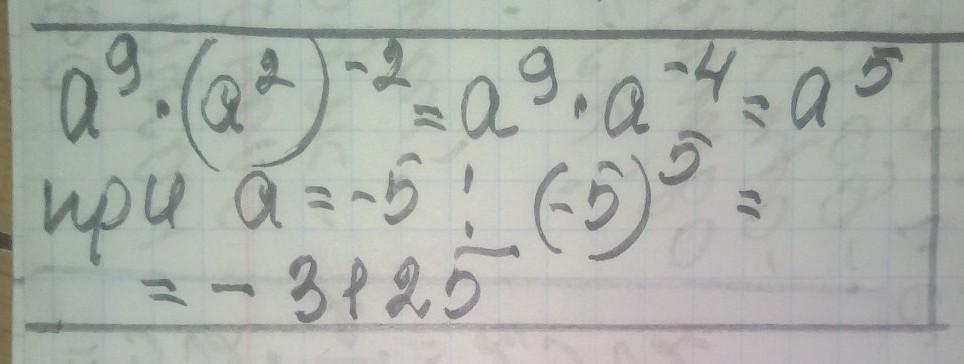 a⁹·(a²)⁻²=a⁹·a⁻⁴=a⁵
при a=-5: (-5)⁵=
=-3125